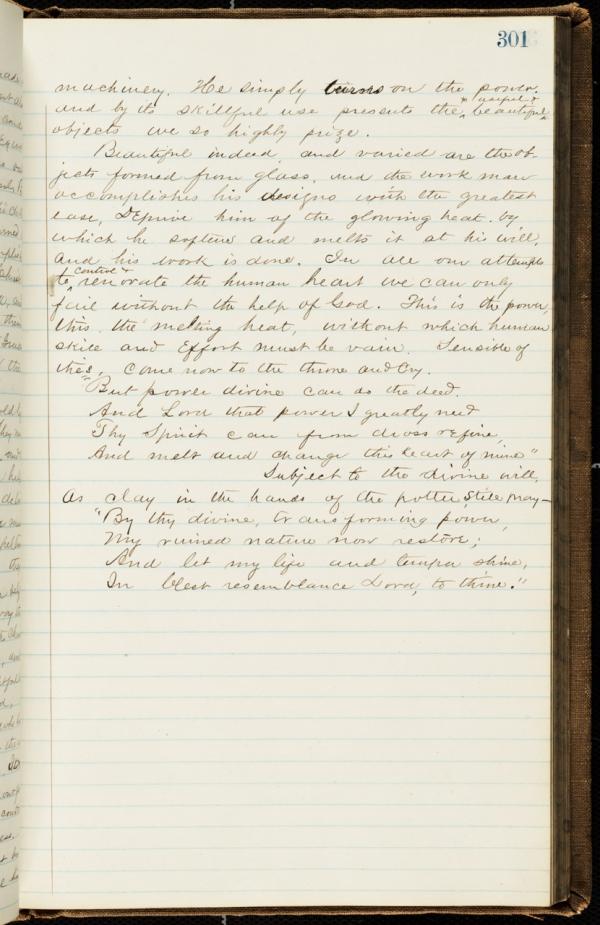 301
machinery. He simply turns on the power,
and by its skillful use presents the useful & beautiful
objects we so highly prize.
Beautiful indeed, and varied are the ob-
jects formed from glass, and the work man
accomplishes his designs with the greatest
ease, Deprive him of the glowing heat. by
which he softens and melts it at his will,
and his work is done. In all our attempts
to control & renovate the human heart we can only
fail without the help of God. This is the power,
this, the melting heat, without which human
skill and effort must be vain. Sensible of
this, come now to the throne and cry.
"But power divine can do the deed.
And Lord that power I greatly need
Thy Spirit can from dross refine,
And melt and change this heart of mine"
Subject to the divine will,
As clay in the hands of the potter, still pray—
"By thy divine, transforming power,
My ruined nature now restore;
And let my life and temper shine,
In blest resemblance Lord, to thine."